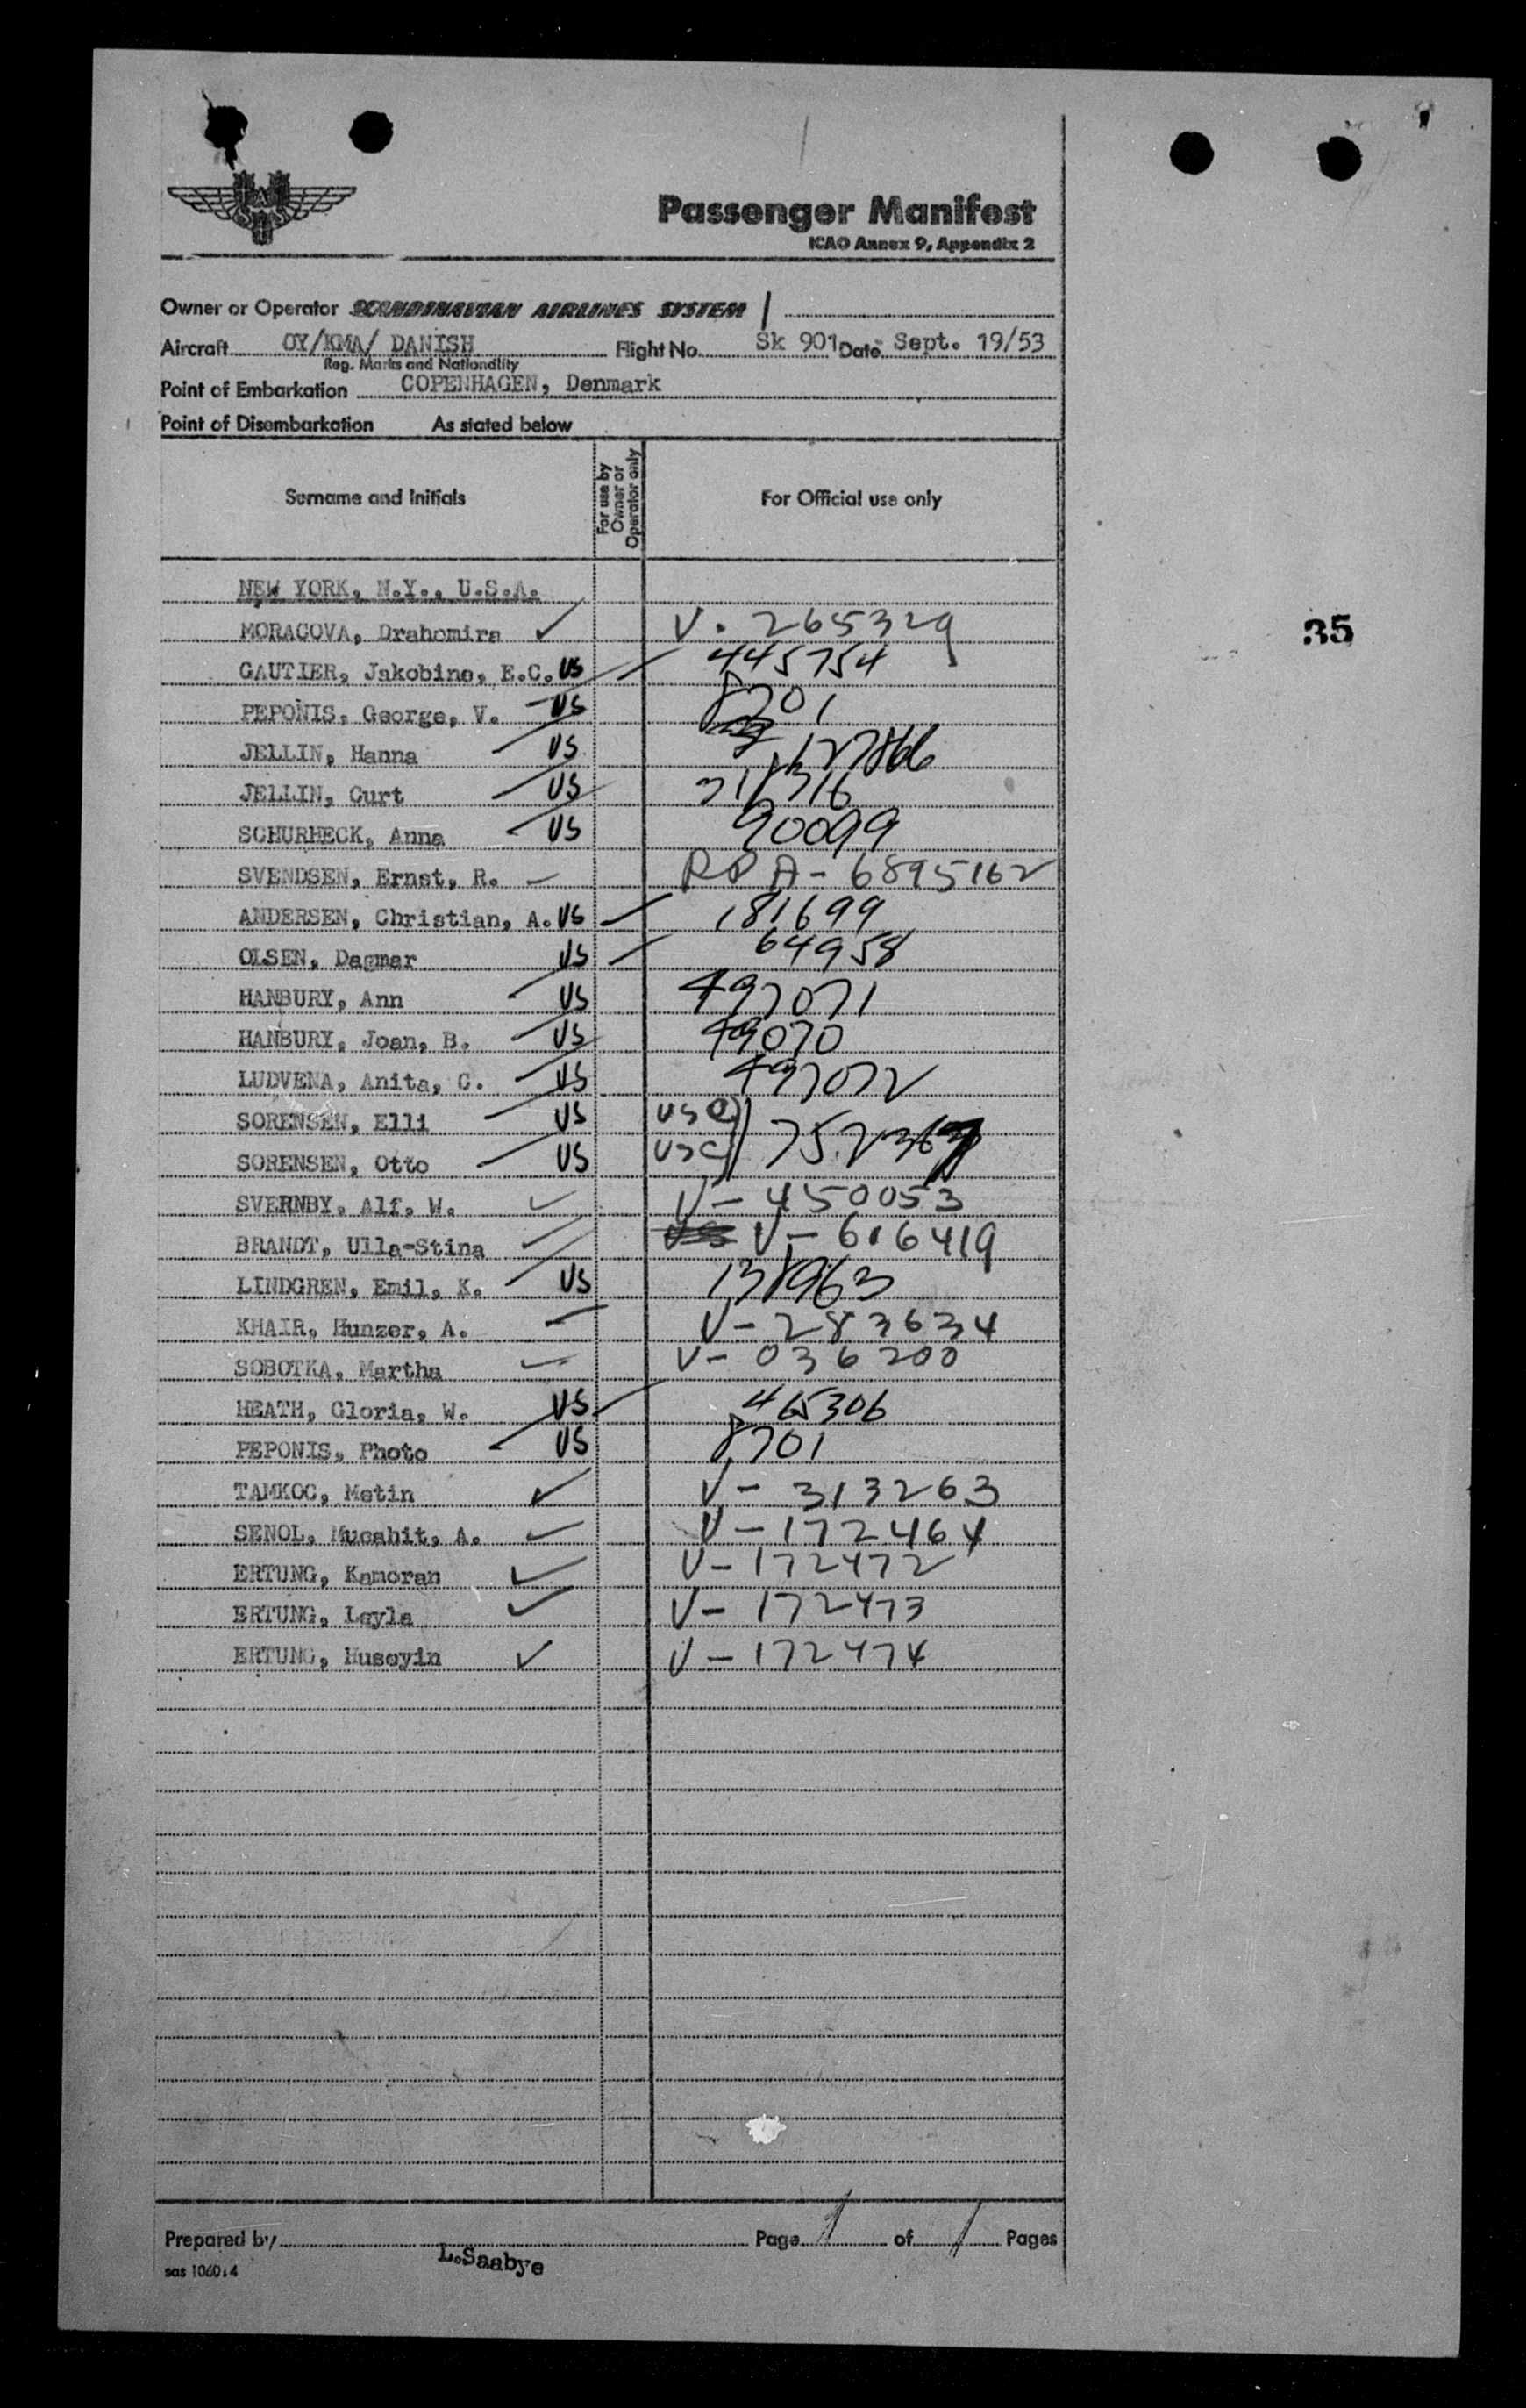 Passenger Manifest
ICAO Annex 9, Appendix 2
Owner or Operator SCANDINAVIAN AIRLINES SYSTEM
Aircraft OY/KMA/ DANISH Flight No. Sk 901 Date Sept. 19/53
Reg. Marks and Nationality
Point of Embarkation COPENHAGEN, Denmark
Point of Disembarkation As stated below
Surname and Initials For use by Owner or Operator only For Official use only
NEW YORK, N.Y., U.S.A.
MORACOVA, Drahomira ✓ V. 265329
35
GAUTIER, Jakobine, E.C. US 445754
PEPONIS, George, V. US 8701
JELLIN, Hanna US 127866
JELLIN, Curt US 318316
SCHURHECK, Anna US 90099
SVENDSEN, Ernst, R. A-6895162
ANDERSEN, Christian, A. US 181699
OLSEN, Dagmar US 64958
HANBURY, Ann US 497071
HANBURY, Joan, B. US 49070
LUDVENA, Anita, C. US 497072
SORENSEN, Elli US USC
SORENSEN, Otto US USC
SVERNBY, Alf, W. ✓ V-450053
BRANDT, Ulla-Stina ✓ V-616419
LINDGREN, Emil, K. US 138963
KHAIR, Hunzer, A. V-283634
SOBOTKA, Martha ✓ V-036200
HEATH, Gloria, W. US 465306
PEPONIS, Photo US 8701
TAMKOC, Metin ✓ V-313263
SENOL, Mucahit, A. ✓ V-172464
ERTUNG, Kamoran ✓ V-172472
ERTUNG, Leyla ✓ V-172473
ERTUNG, Huseyin ✓ V-172474
Prepared by L.Saabye Page 1 of 1 Pages
sas 1060:4